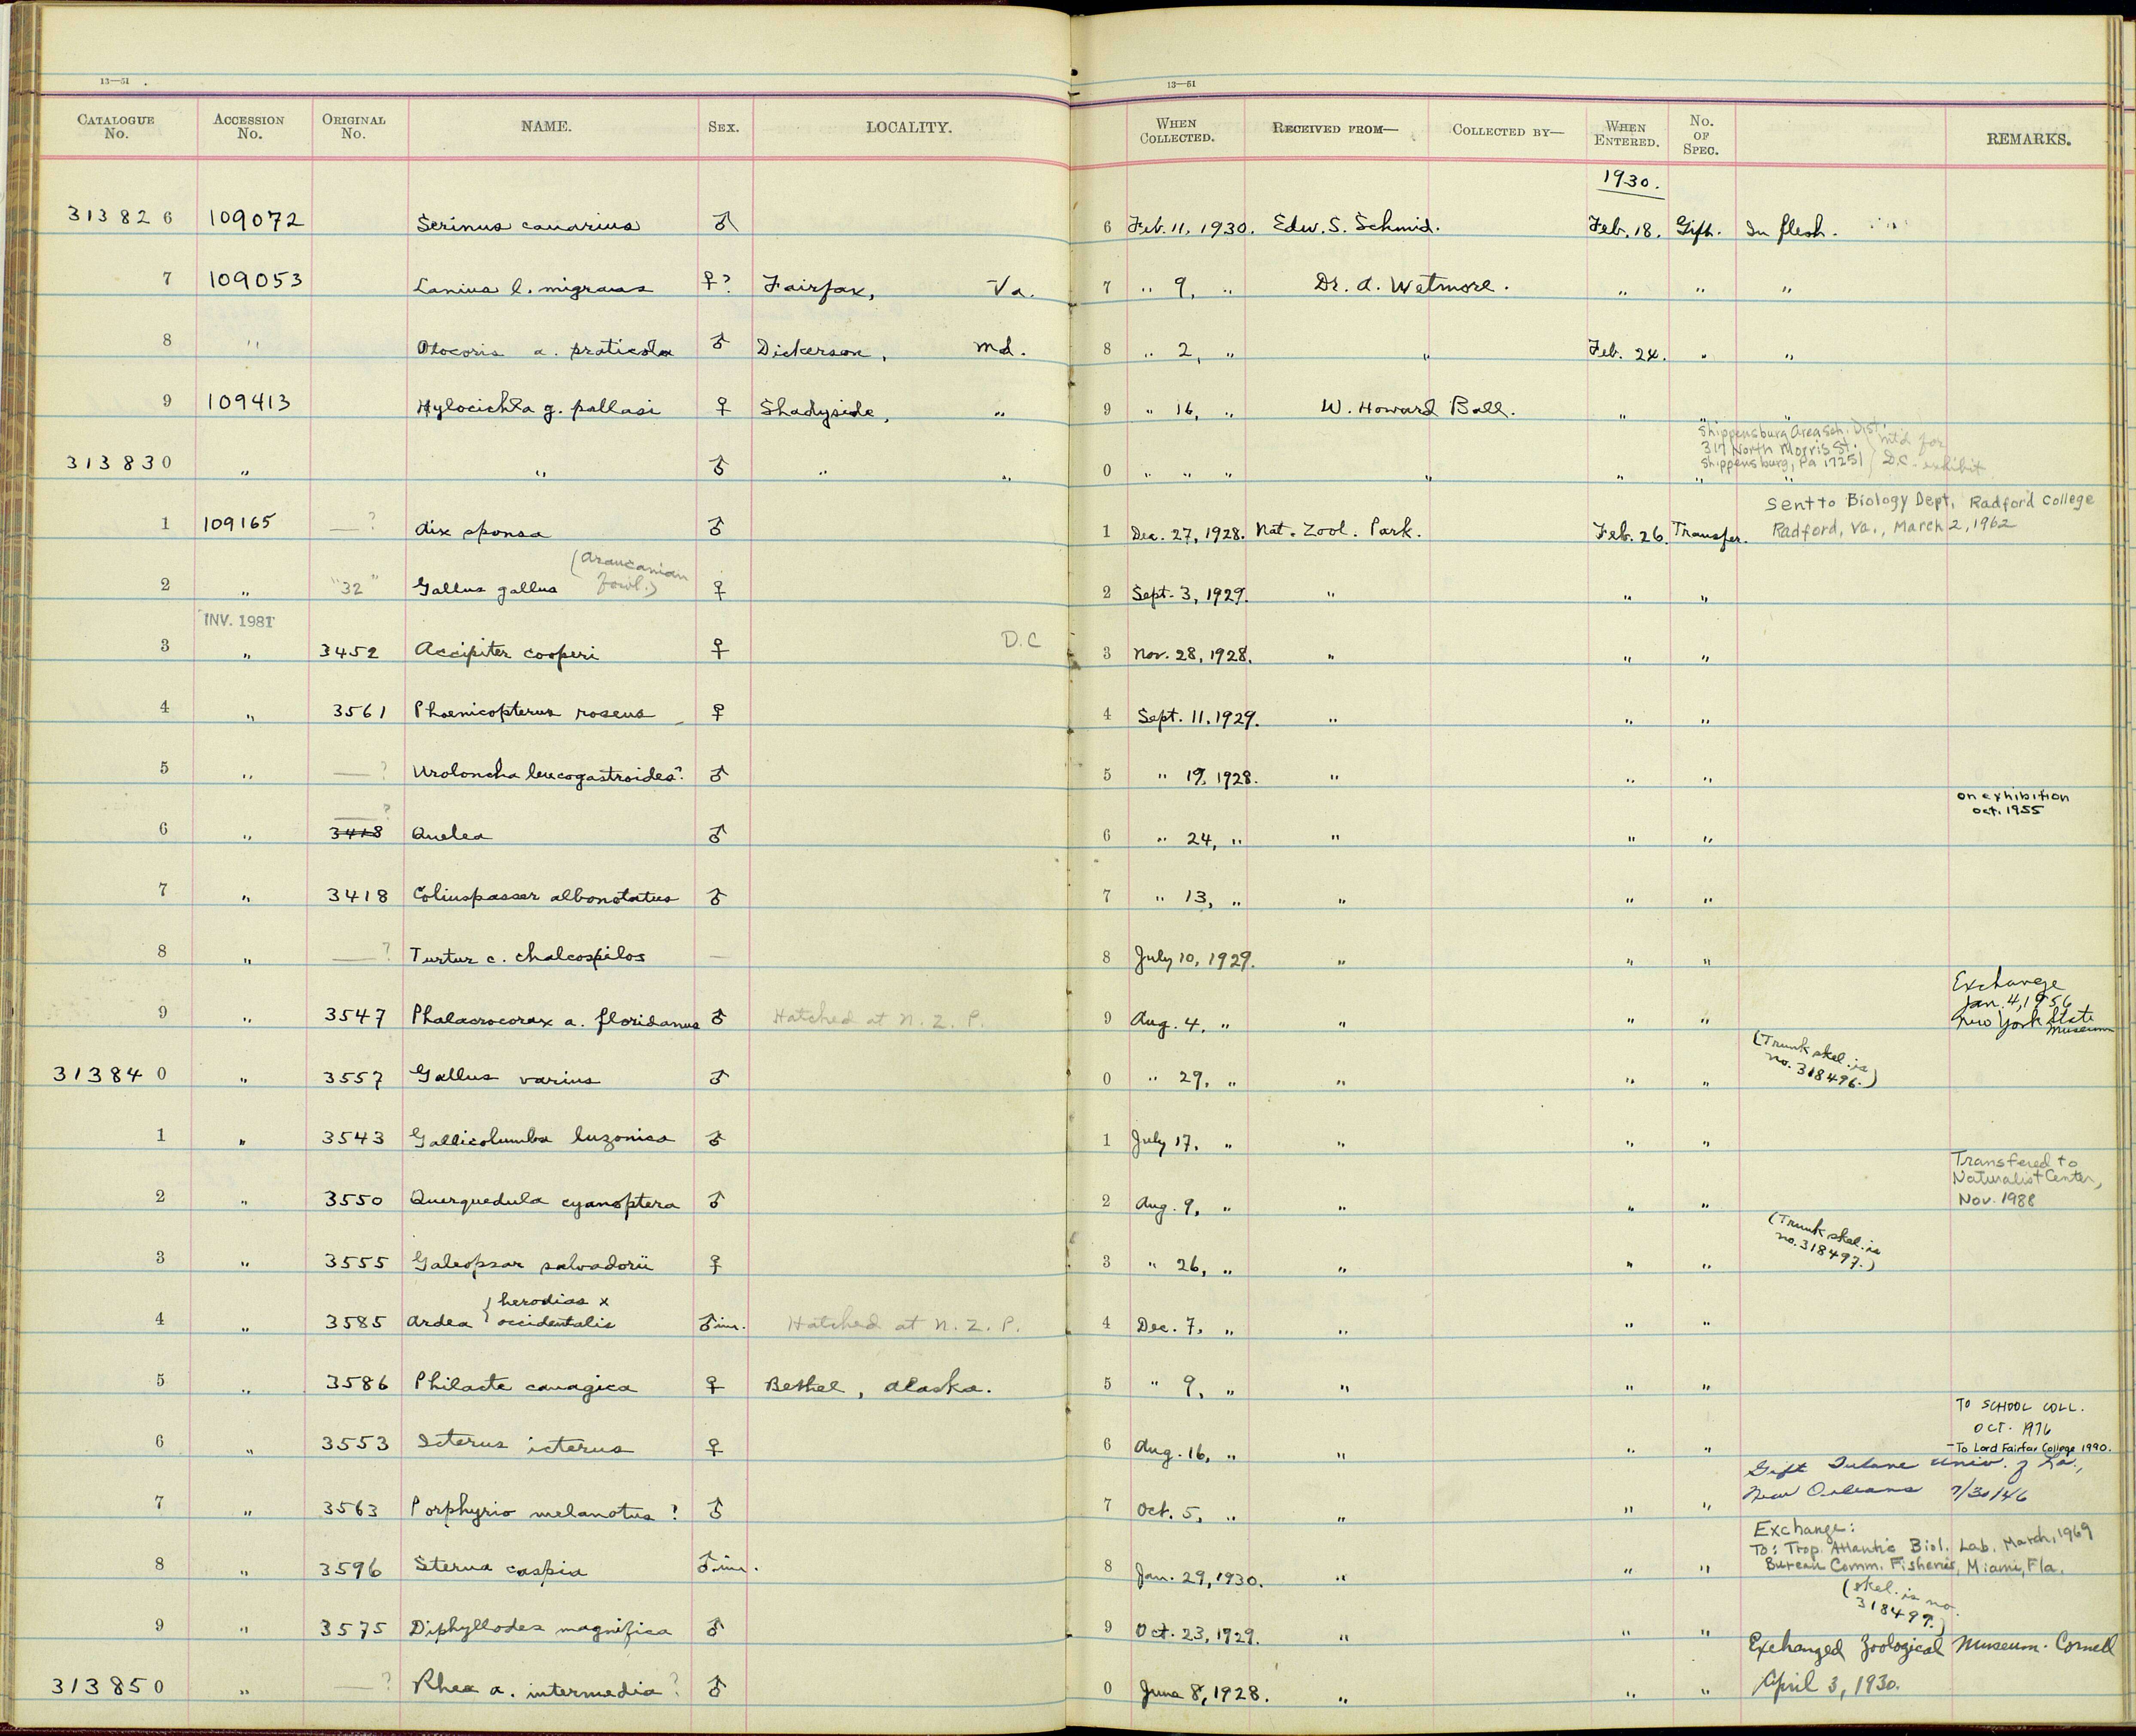 13—51
13—51
CATALOGUE No. ACCESSION No. ORIGINAL No. NAME. SEX. LOCALITY. WHEN COLLECTED. RECEIVED FROM— COLLECTED BY— WHEN ENTERED. No. OF SPEC. REMARKS.
1930.
313826 109072 Serinus canarius ♂ 6 Feb. 11, 1930. Edw. S. Schmid. Feb. 18. Gift. In flesh.
7 109053 Lanius l. migrans ♀? Fairfax, Va. 7 " 9, " Dr. A. Wetmore. " " "
8 " Otocoris a. praticola ♂ Dickerson, Md. 8 " 2, " " Feb. 24. " "
9 109413 Hylocichla g. pallasi ♀ Shadyside, " 9 " 16, " W. Howard Ball. " " "
Shippensburg Area Sch. Dist.
317 North Morris St.
Shippensburg, Pa 17257
mt'd for
D.C. exhibit
313830 " " ♂ " " 0 " " " " " " "
Sent to Biology Dept, Radford College
Radford, Va., March 2, 1962
1 109165 —? Aix sponsa ♂ 1 Dec. 27, 1928. Nat. Zool. Park. Feb. 26. Transfer.
2 " "32" Gallus gallus (Araucanian fowl.) ♀ 2 Sept. 3, 1929. " " "
INV. 1981
3 " 3452 Accipiter cooperi ♀ D.C 3 Nov. 28, 1928. " " "
4 " 3561 Phoenicopterus roseus ♀ 4 Sept. 11, 1929. " " "
5 " —? Uroloncha leucogastroides? ♂ 5 " 19, 1928. " " "
on exhibition
oct. 1955
6 " 3418 —? Quelea ♂ 6 " 24, " " " "
7 " 3418 Coliuspasser albonotatus ♂ 7 " 13, " " " "
8 " —? Turtur c. chalcospilos — 8 July 10, 1929. " " "
Exchange
Jan. 4, 1956
New York State
Museum
9 " 3547 Phalacrocorax a. floridanus ♂ Hatched at N. Z. P. 9 Aug. 4, " " " "
(Trunk skel. is
no. 318496.)
313840 " 3557 Gallus varius ♂ 0 " 29, " " " "
1 " 3543 Gallicolumba luzonica ♂ 1 July 17, " " " "
Transfered to
Naturalist Center,
Nov. 1988
2 " 3550 Querquedula cyanoptera ♂ 2 Aug. 9, " " " "
(Trunk skel. is
no. 318497.)
3 " 3555 Galeopsar salvadorii ♀ 3 " 26, " " " "
4 " 3585 Ardea { herodias x occidentalis ♂ im. Hatched at N. Z. P. 4 Dec. 7, " " " "
5 " 3586 Philacte canagica ♀ Bethel, Alaska. 5 " 9, " " " "
TO SCHOOL COLL.
OCT. 1976
-To Lord Fairfax College 1990.
6 " 3553 Icterus icterus ♀ 6 Aug. 16, " " " "
Gift Tulane Univ. of La.,
New Orleans 7/30/46
7 " 3563 Porphyrio melanotus ? ♂ 7 Oct. 5, " " " "
Exchange:
To: Trop. Atlantic Biol. Lab. March, 1969
Bureau Comm. Fisheries, Miami, Fla.
8 " 3596 Sterna caspia ♂ im. 8 Jan. 29, 1930. " " "
(Skel. is no.
318499.)
9 " 3575 Diphyllodes magnifica ♂ 9 Oct. 23, 1929. " " "
Exchanged Zoological Museum. Cornell
April 3, 1930.
313850 " —? Rhea a. intermedia ? ♂ 0 June 8, 1928. " " "